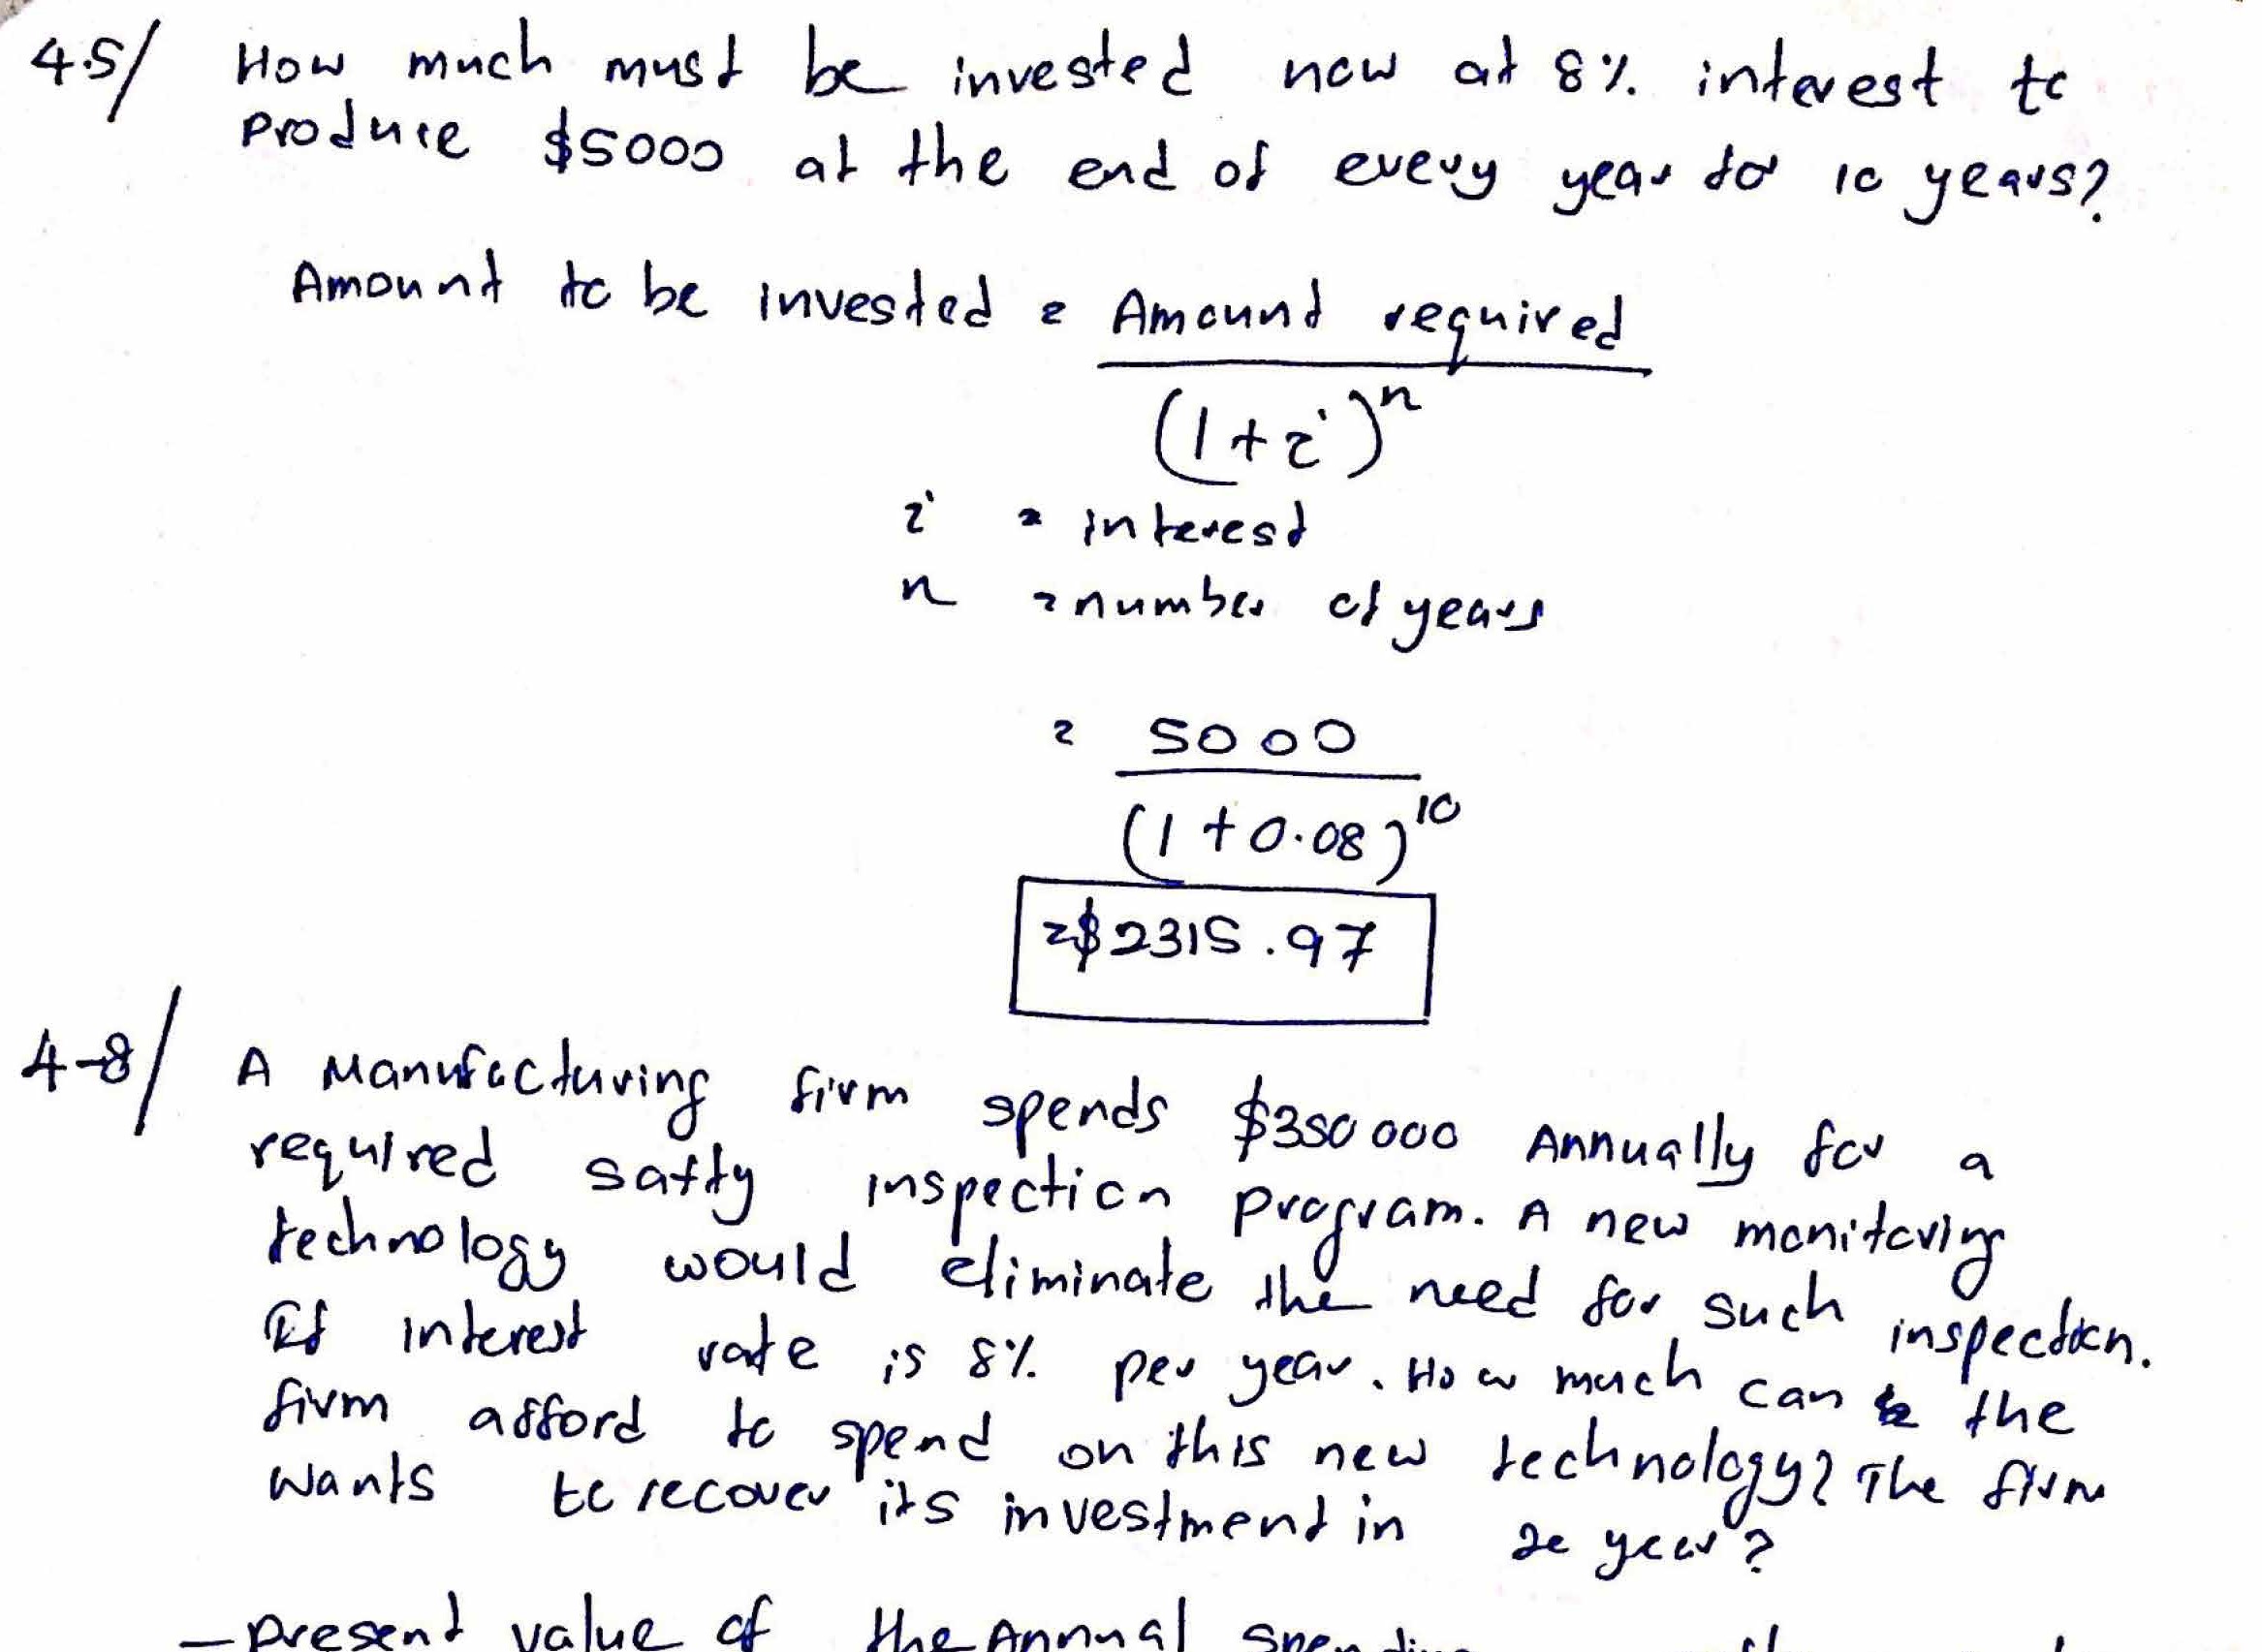 4.5/ How much must be invested now at 8% interest to
produce $5000 at the end of every year for 10 years?
Amount to be invested = Amount required
(1+i)^n
i = interest
n = number of years
= 5000
(1+0.08)^10
=$2315.97
4-8/ A Manufacturing firm spends $350000 Annually for a
required safty inspection program. A new monitoring
technology would eliminate the need for such inspection.
If interest rate is 8% per year. How much can the
firm afford to spend on this new technology? The firm
wants to recover its investment in 20 year?
- present value of the Annual